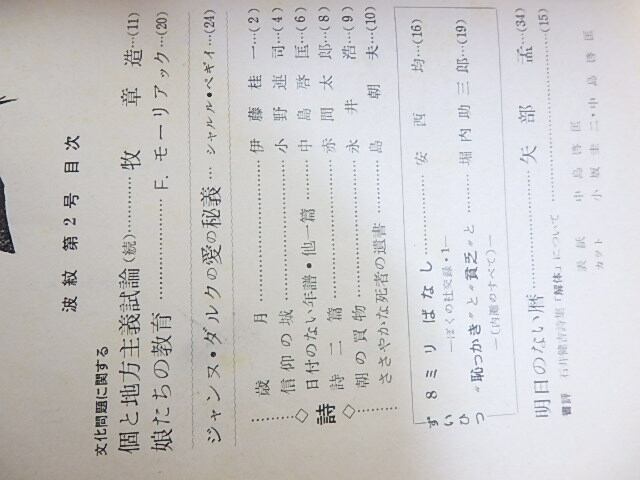 波紋 第2号 目次
文化問題に関する
個と地方主義試論(続)…………牧 章 造…(11)
娘たちの教育…………F. モーリアック…(20)
ジャンヌ・ダルクの愛の秘義…シャルル・ペギイ…(24)
詩
歳 月…………伊 藤 桂 一…(2)
信仰の城…………小 野 連 司…(4)
日付のない年譜・他一篇…………中 島 啓 匡…(6)
詩 二 篇…………赤 間 太 郎…(8)
朝の買物…………永 井 浩…(9)
ささやかな死者の遺書…………島 朝 夫…(10)
ずいひつ
8ミリ ばなし…………安 西 均…(16)
―ぼくの社交録・1―
“恥っかき”と“貧乏”と……堀 内 助 三 郎…(19)
―〔内灘のすべて〕―
明日のない暦…………矢 部 孟…(34)
書評 石川健吉詩集「解体」について…………(15)
表紙 中 島 啓 匡
カット 小 坂 圭 二・中 島 啓 匡